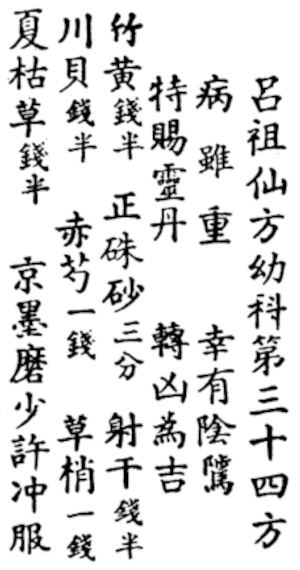 呂祖仙方幼科第三十四方
病雖重　幸有陰騭
特賜靈丹　轉凶為吉
竹黃錢半　正硃砂三分　射干錢半
川貝錢半　赤芍一錢　草梢一錢
夏枯草錢半　京墨磨少許冲服